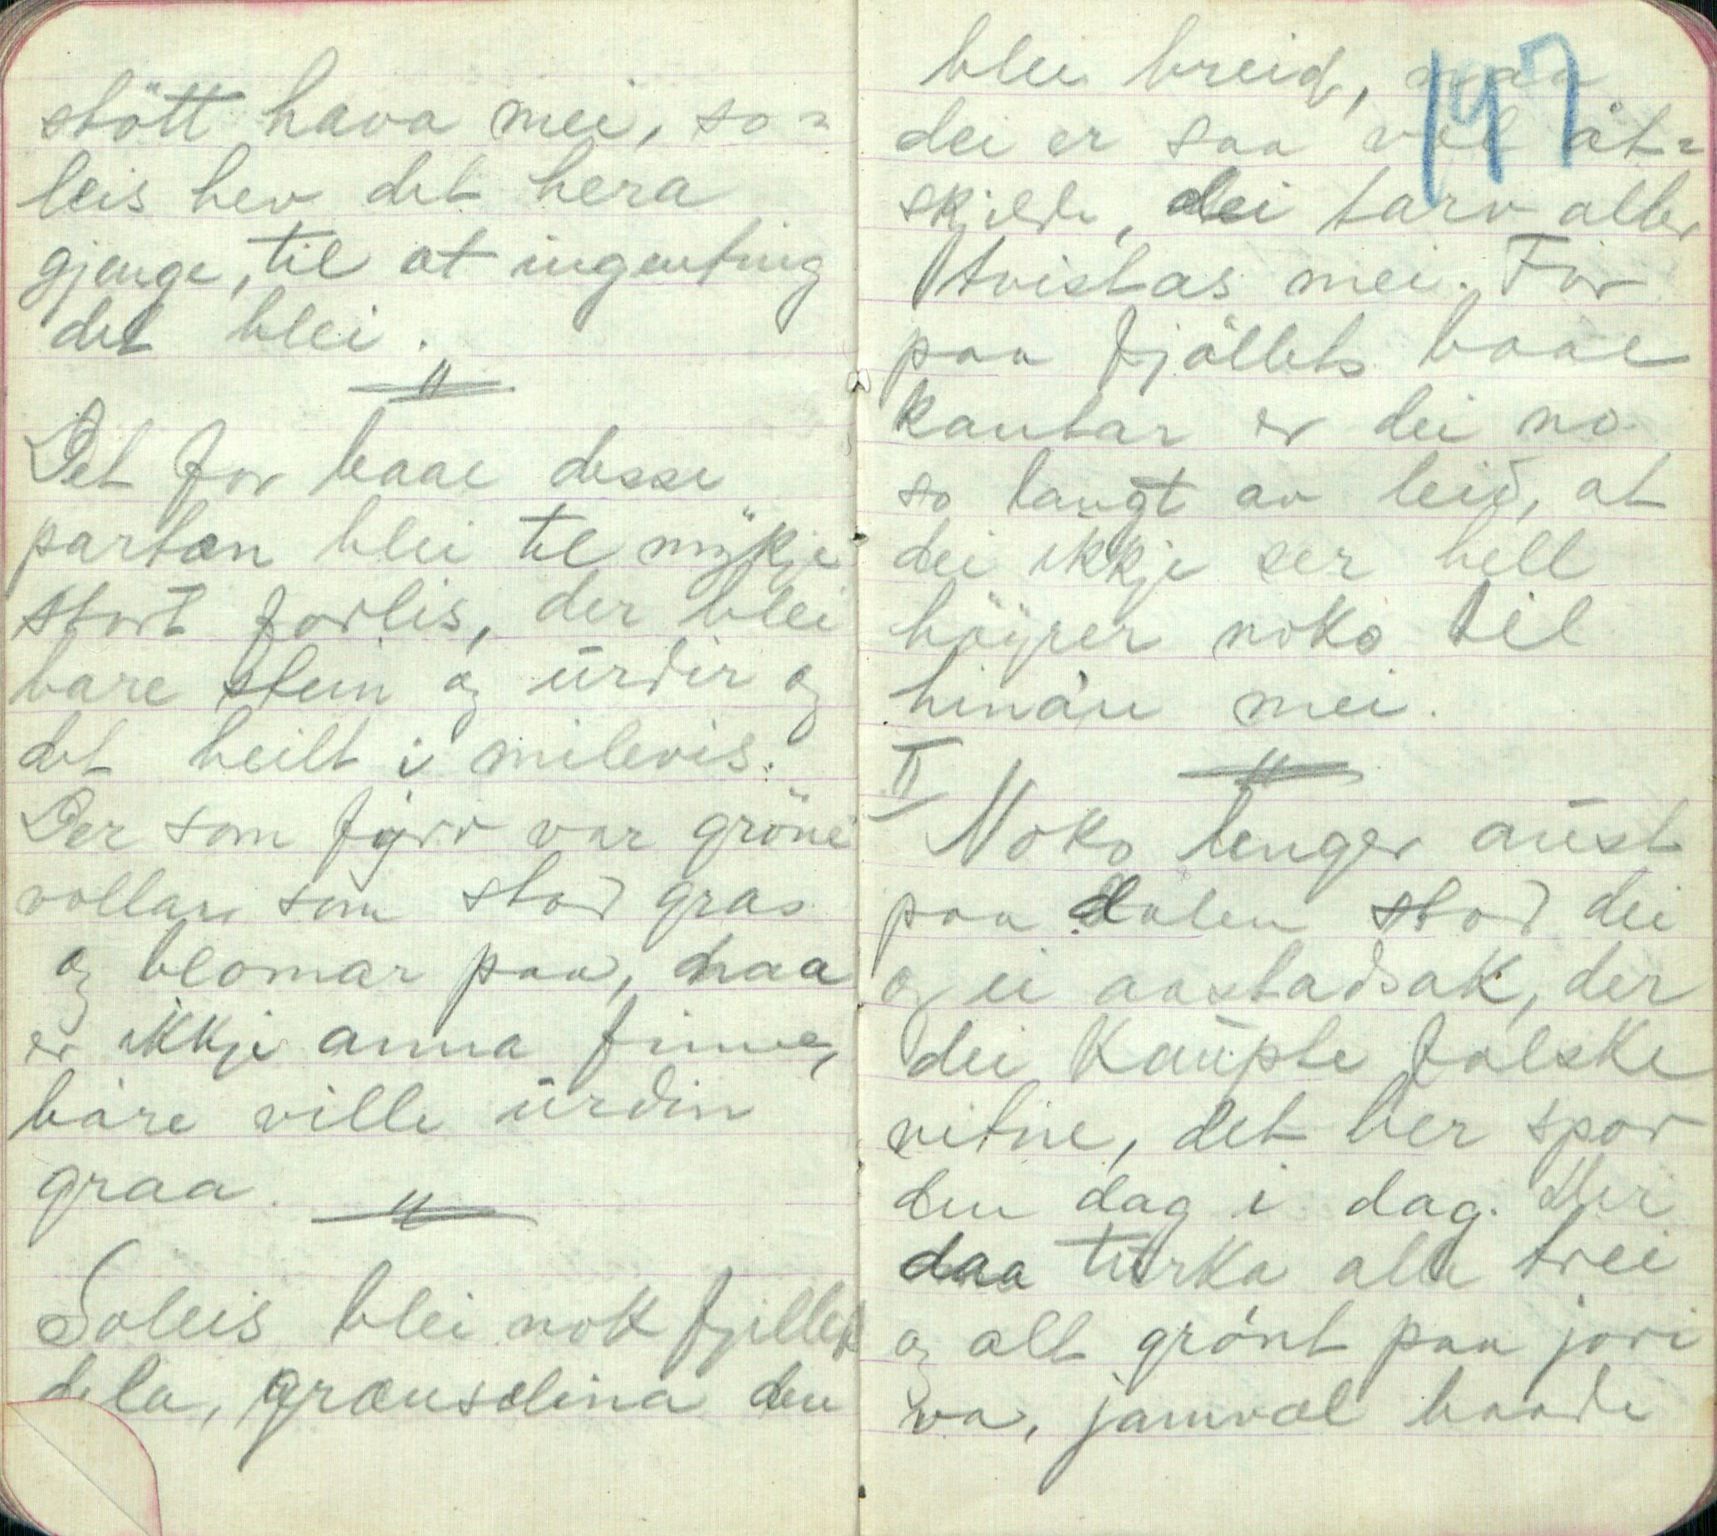 stött hava mei, so=
leis hev det hera
gjenge, til at ingenting
det blei.
"
Det for baae desse
partan blei til mykje
stort forlis, der blei
bare stein og urdir og
det heilt i milevis.
Der som fyrr var gröne
vollar som stod gras
og blomar paa, naa
er ikkje anna finne,
bare ville urdin
graa.
"
Soleis blei nok fjillet
dela, grænselina den
blei breid, naa
197
dei er saa vel åt=
skjilde, dei tarv aller
tvistas mei. For
paa fjöllets baae
kantar er dei no
so langt av leid, at
dei ikkje ser hell
höyrer noko til
hinan mei.
"
II
Noko lenger aust
paa dalen stod dei
og ei aastadsak, der
dei kaupte falske
vitne, det ber spor
den dag i dag. Der
daa turka alle trei
og alt grönt paa jori
va, jamvæl baade